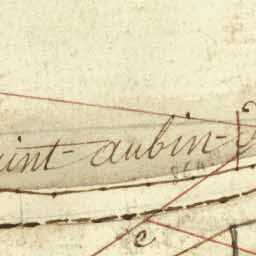 aint-aubin-
c